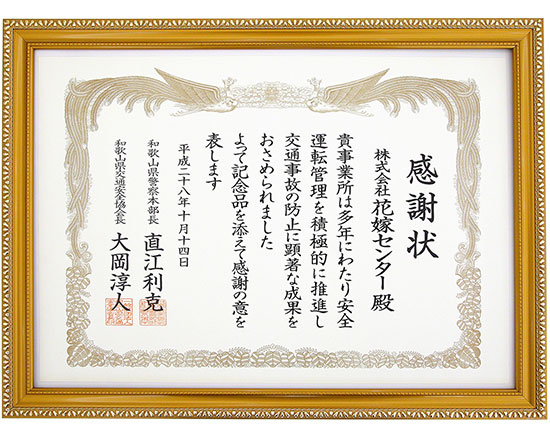 感謝状
株式会社花嫁センター殿
貴事業所は多年にわたり安全
運転管理を積極的に推進し
交通事故の防止に顕著な成果を
おさめられました
よって記念品を添えて感謝の意を
表します
平成二十八年十月十四日
和歌山県警察本部長 直江利克
和歌山県交通安全協会長 大岡淳人